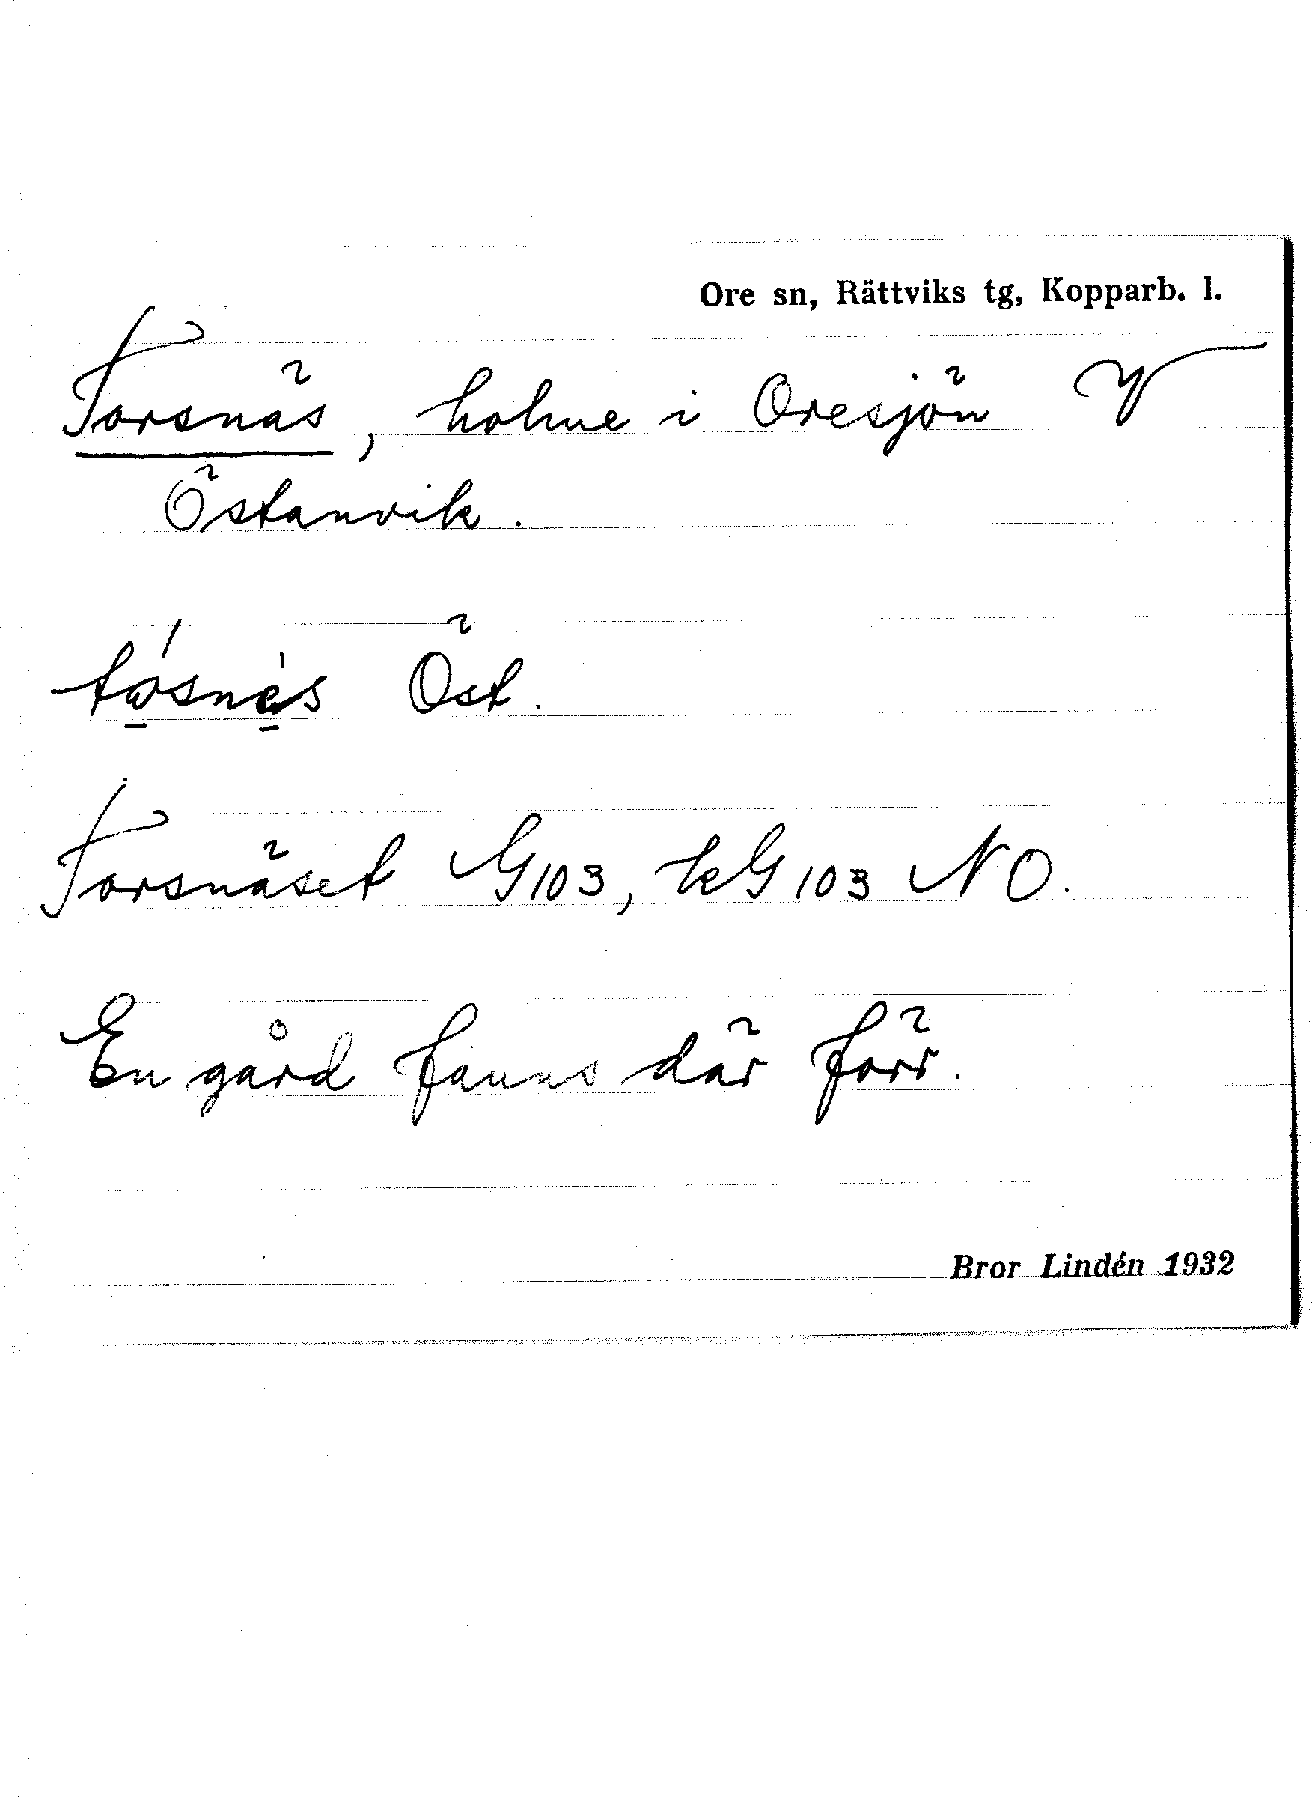 Ore sn, Rättviks tg, Kopparb. l.
Torsnäs, holme i Oresjön V
Östanvik.
Öst.
Torsnäset G103, kG103 NO.
En gård fanns där förr.
Bror Lindén 1932